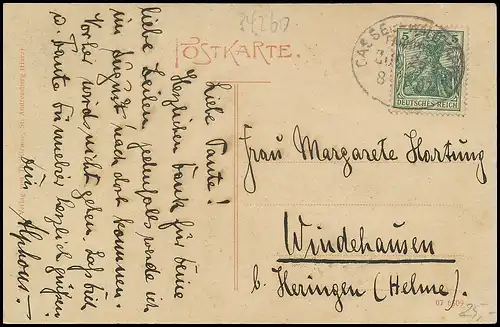 34260
POSTKARTE.
CASSEL
5 5
DEUTSCHES REICH
Liebe Tante!
Herzlichen Dank für Deine
liebe Zeilen, jedenfalls werde ich
im August nach dort kommen.
Vorher wird nicht gehen. Laß Dich
u. Tante herzlich grüßen
Dein Alphons.
Frau Margarete Hartung
Windehausen
b. Heringen (Helme).
07 1609
25,-
St. Andreasberg (Harz)